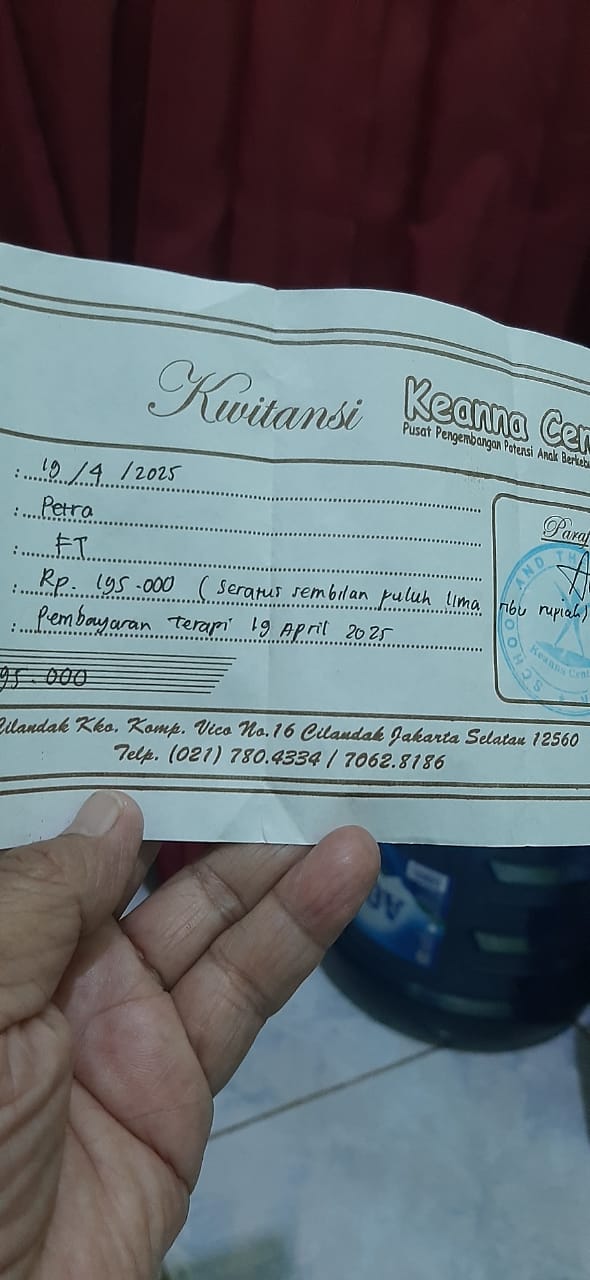 Kwitansi
Keanna Cen
Pusat Pengembangan Potensi Anak Berkebu
: 19/4/2025
: Petra
: FT
: Rp. 195.000 (Seratus sembilan puluh lima ribu rupiah)
: Pembayaran Terapi 19 April 2025
Paraf
AND TH
SCHOO
Keanna Cent
95.000
Cilandak Kko. Komp. Vico No.16 Cilandak Jakarta Selatan 12560
Telp. (021) 780.4334 / 7062.8186